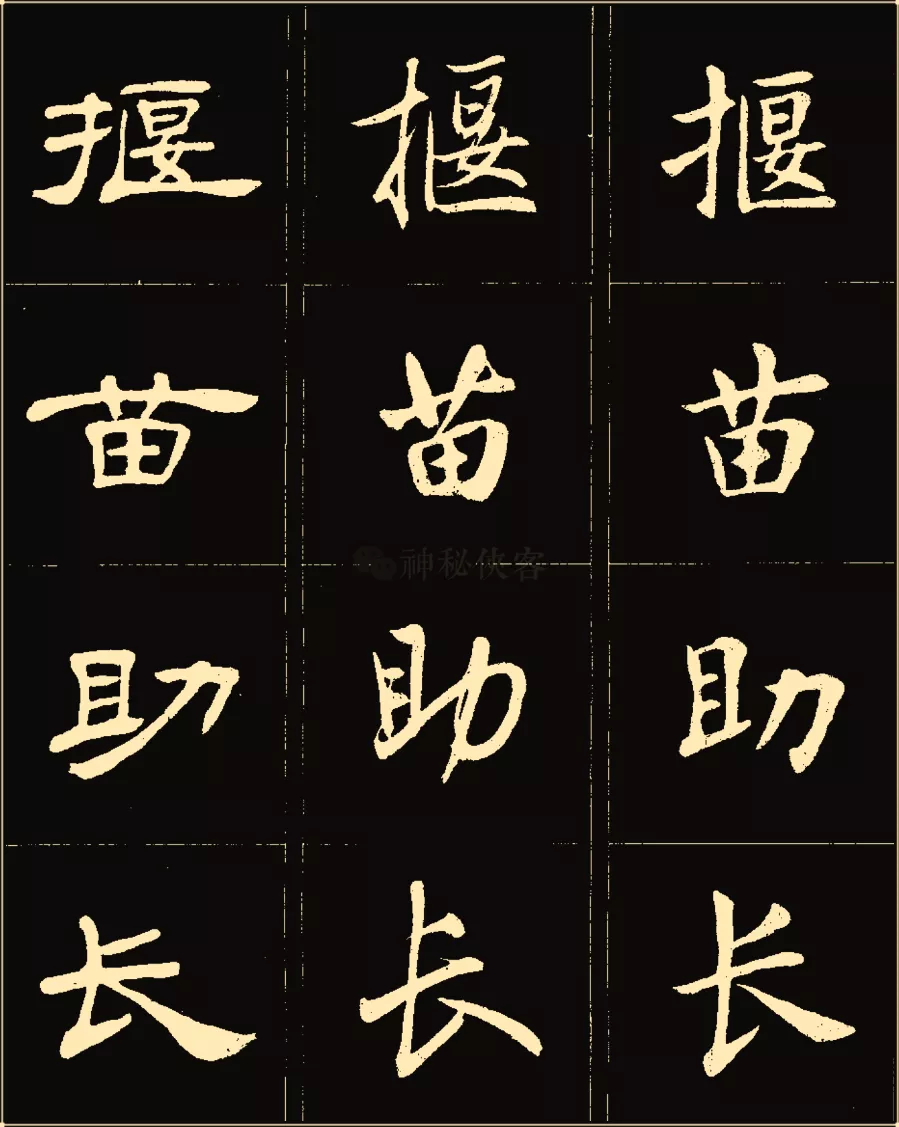 揠苗助长
揠苗助长
揠苗助长
神秘侠客